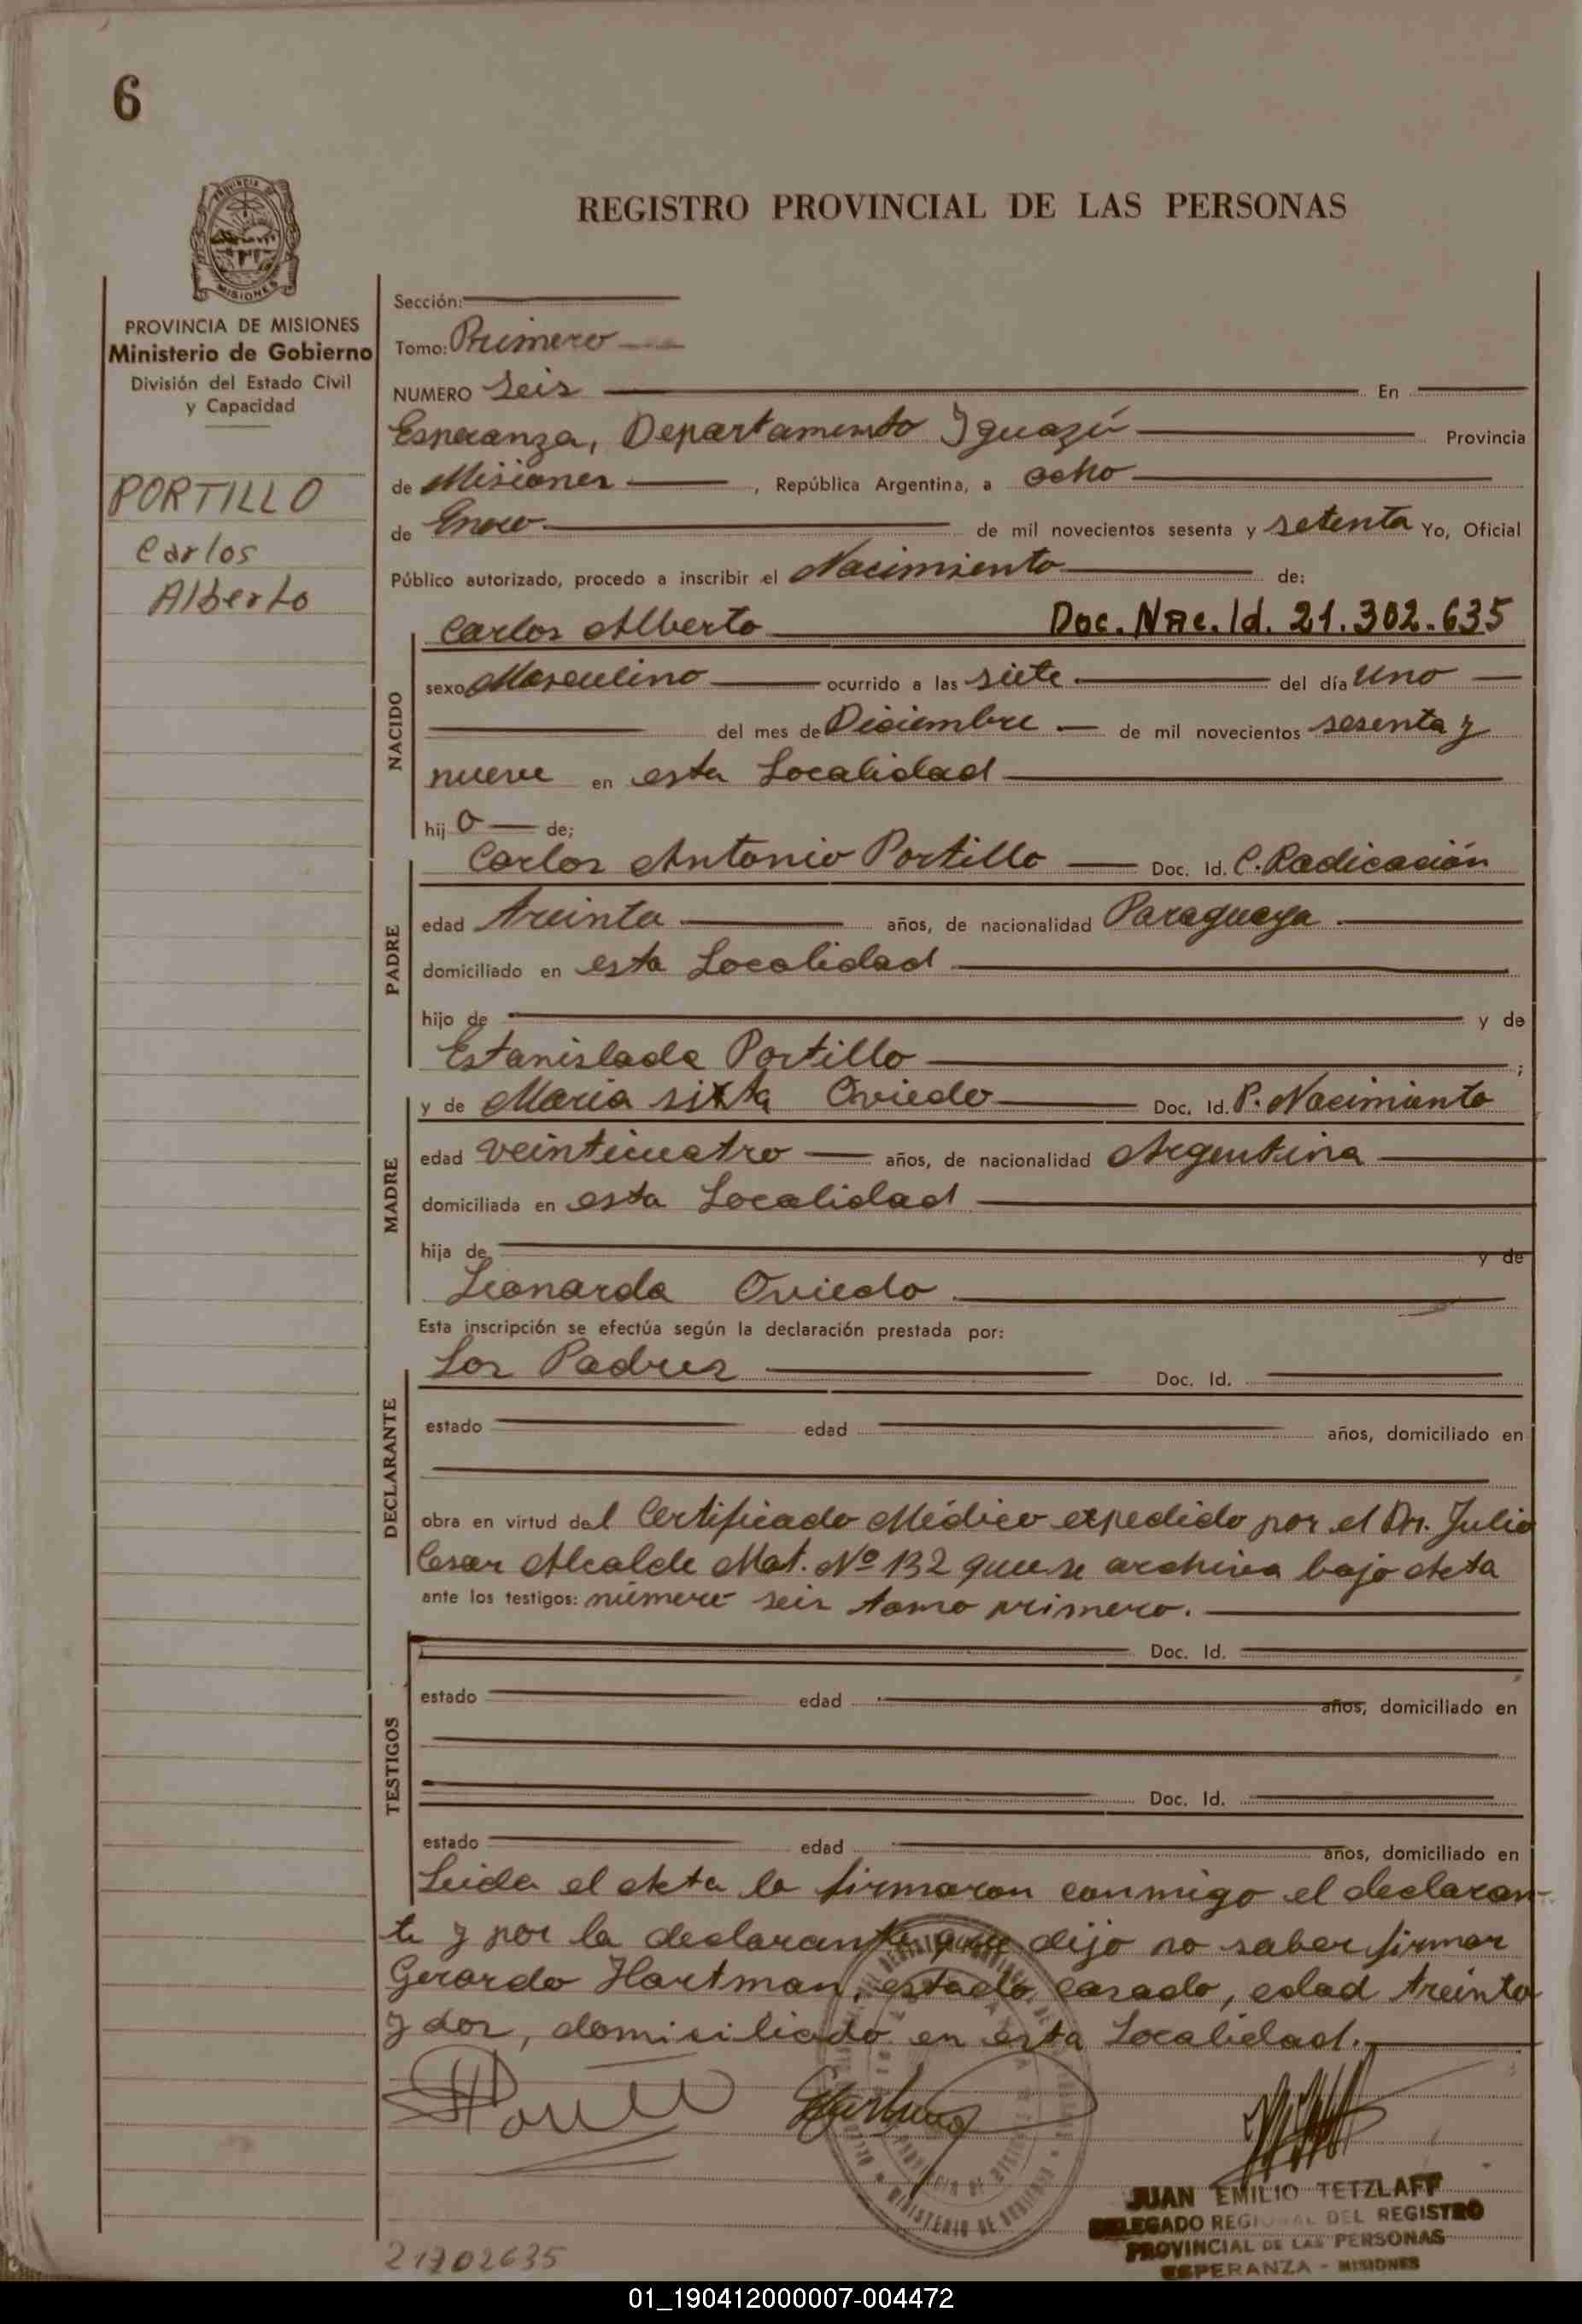 6
REGISTRO PROVINCIAL DE LAS PERSONAS
PROVINCIA DE MISIONES
Ministerio de Gobierno
División del Estado Civil
y Capacidad
PORTILLO
Carlos
Alberto
Sección:
Tomo: Primero
NUMERO Seis En
Esperanza, Departamento Iguazú Provincia
de Misiones, República Argentina, a ocho
de Enero de mil novecientos sesenta y setenta Yo, Oficial
Público autorizado, procedo a inscribir el Nacimiento de:
NACIDO
Carlos Alberto Doc. Nac. Id. 21.302.635
sexo Masculino ocurrido a las siete del día uno
del mes de Diciembre de mil novecientos sesenta y
nueve en esta Localidad
hijo de;
PADRE
Carlos Antonio Portillo Doc. Id. C. Radicación
edad treinta años, de nacionalidad Paraguaya
domiciliado en esta Localidad
hijo de y de
Estanislada Portillo ;
MADRE
y de Maria sixta Oviedo Doc. Id. P. Nacimiento
edad veinticuatro años, de nacionalidad Argentina
domiciliada en esta Localidad
hija de y de
Leonarda Oviedo
Esta inscripción se efectúa según la declaración prestada por:
DECLARANTE
Los Padres Doc. Id.
estado edad años, domiciliado en
obra en virtud del Certificado Médico expedido por el Dr. Julio
Cesar Alcalde Mat. Nº 132 que se archiva bajo Acta
ante los testigos: número seis tomo primero.
TESTIGOS
Doc. Id.
estado edad años, domiciliado en
Doc. Id.
estado edad años, domiciliado en
Leida el Acta la firmaron conmigo el declaran-
te y por la declarante que dijo no saber firmar
Gerardo Hartman, estado casado, edad treinta
y dos, domiciliado en esta Localidad.
JUAN EMILIO TETZLAFF
DELEGADO REGIONAL DEL REGISTRO
PROVINCIAL DE LAS PERSONAS
ESPERANZA - MISIONES
MINISTERIO DE GOBIERNO
01_190412000007-004472